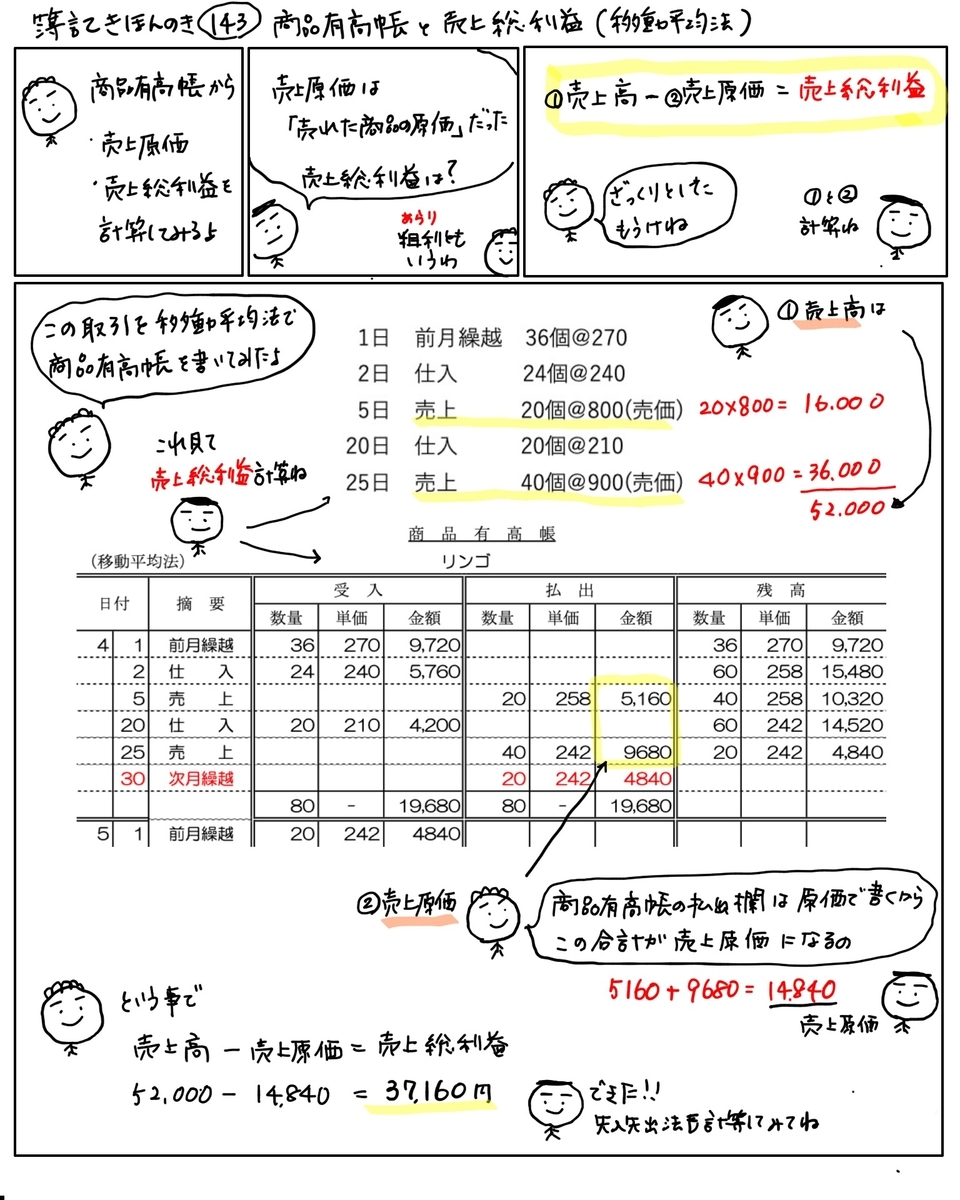 簿記きほんのき 143 商品有高帳と売上総利益(移動平均法)
商品有高帳から
・売上原価
・売上総利益を
計算してみるよ
売上原価は
「売れた商品の原価」だった
売上総利益は?
あらり
粗利とも
いうわ
①売上高-②売上原価=売上総利益
ざっくりとした
もうけね
①と②
計算ね
この取引を移動平均法で
商品有高帳を書いてみたよ
これ見て
売上総利益計算ね
①売上高は
1日 前月繰越 36個@270
2日 仕入 24個@240
5日 売上 20個@800(売価) 20×800= 16.000
20日 仕入 20個@210
25日 売上 40個@900(売価) 40×900=36.000
52.000
商品有高帳
(移動平均法) リンゴ
日付 摘要 受入 払出 残高
数量 単価 金額 数量 単価 金額 数量 単価 金額
4 1 前月繰越 36 270 9,720 36 270 9,720
2 仕入 24 240 5,760 60 258 15,480
5 売上 20 258 5,160 40 258 10,320
20 仕入 20 210 4,200 60 242 14,520
25 売上 40 242 9680 20 242 4,840
30 次月繰越 20 242 4840
80 - 19,680 80 - 19,680
5 1 前月繰越 20 242 4840
②売上原価
商品有高帳の払出欄は原価で書くから
この合計が売上原価になるの
5160+9680=14.840
売上原価
という事で
売上高-売上原価=売上総利益
52,000-14,840=37,160円
できた!!
先入先出法も計算してみてね